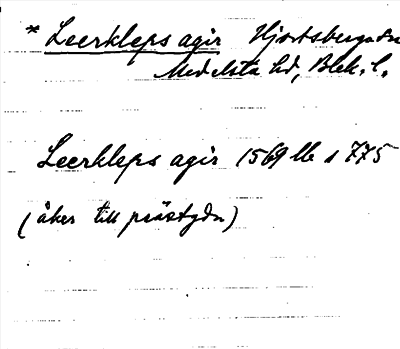 * Leerkleps agir Hjortsberga sn
Medelsta hd, Blek. l.
Leerkleps agir 1569 llb s 775
(åker till prästgdn)